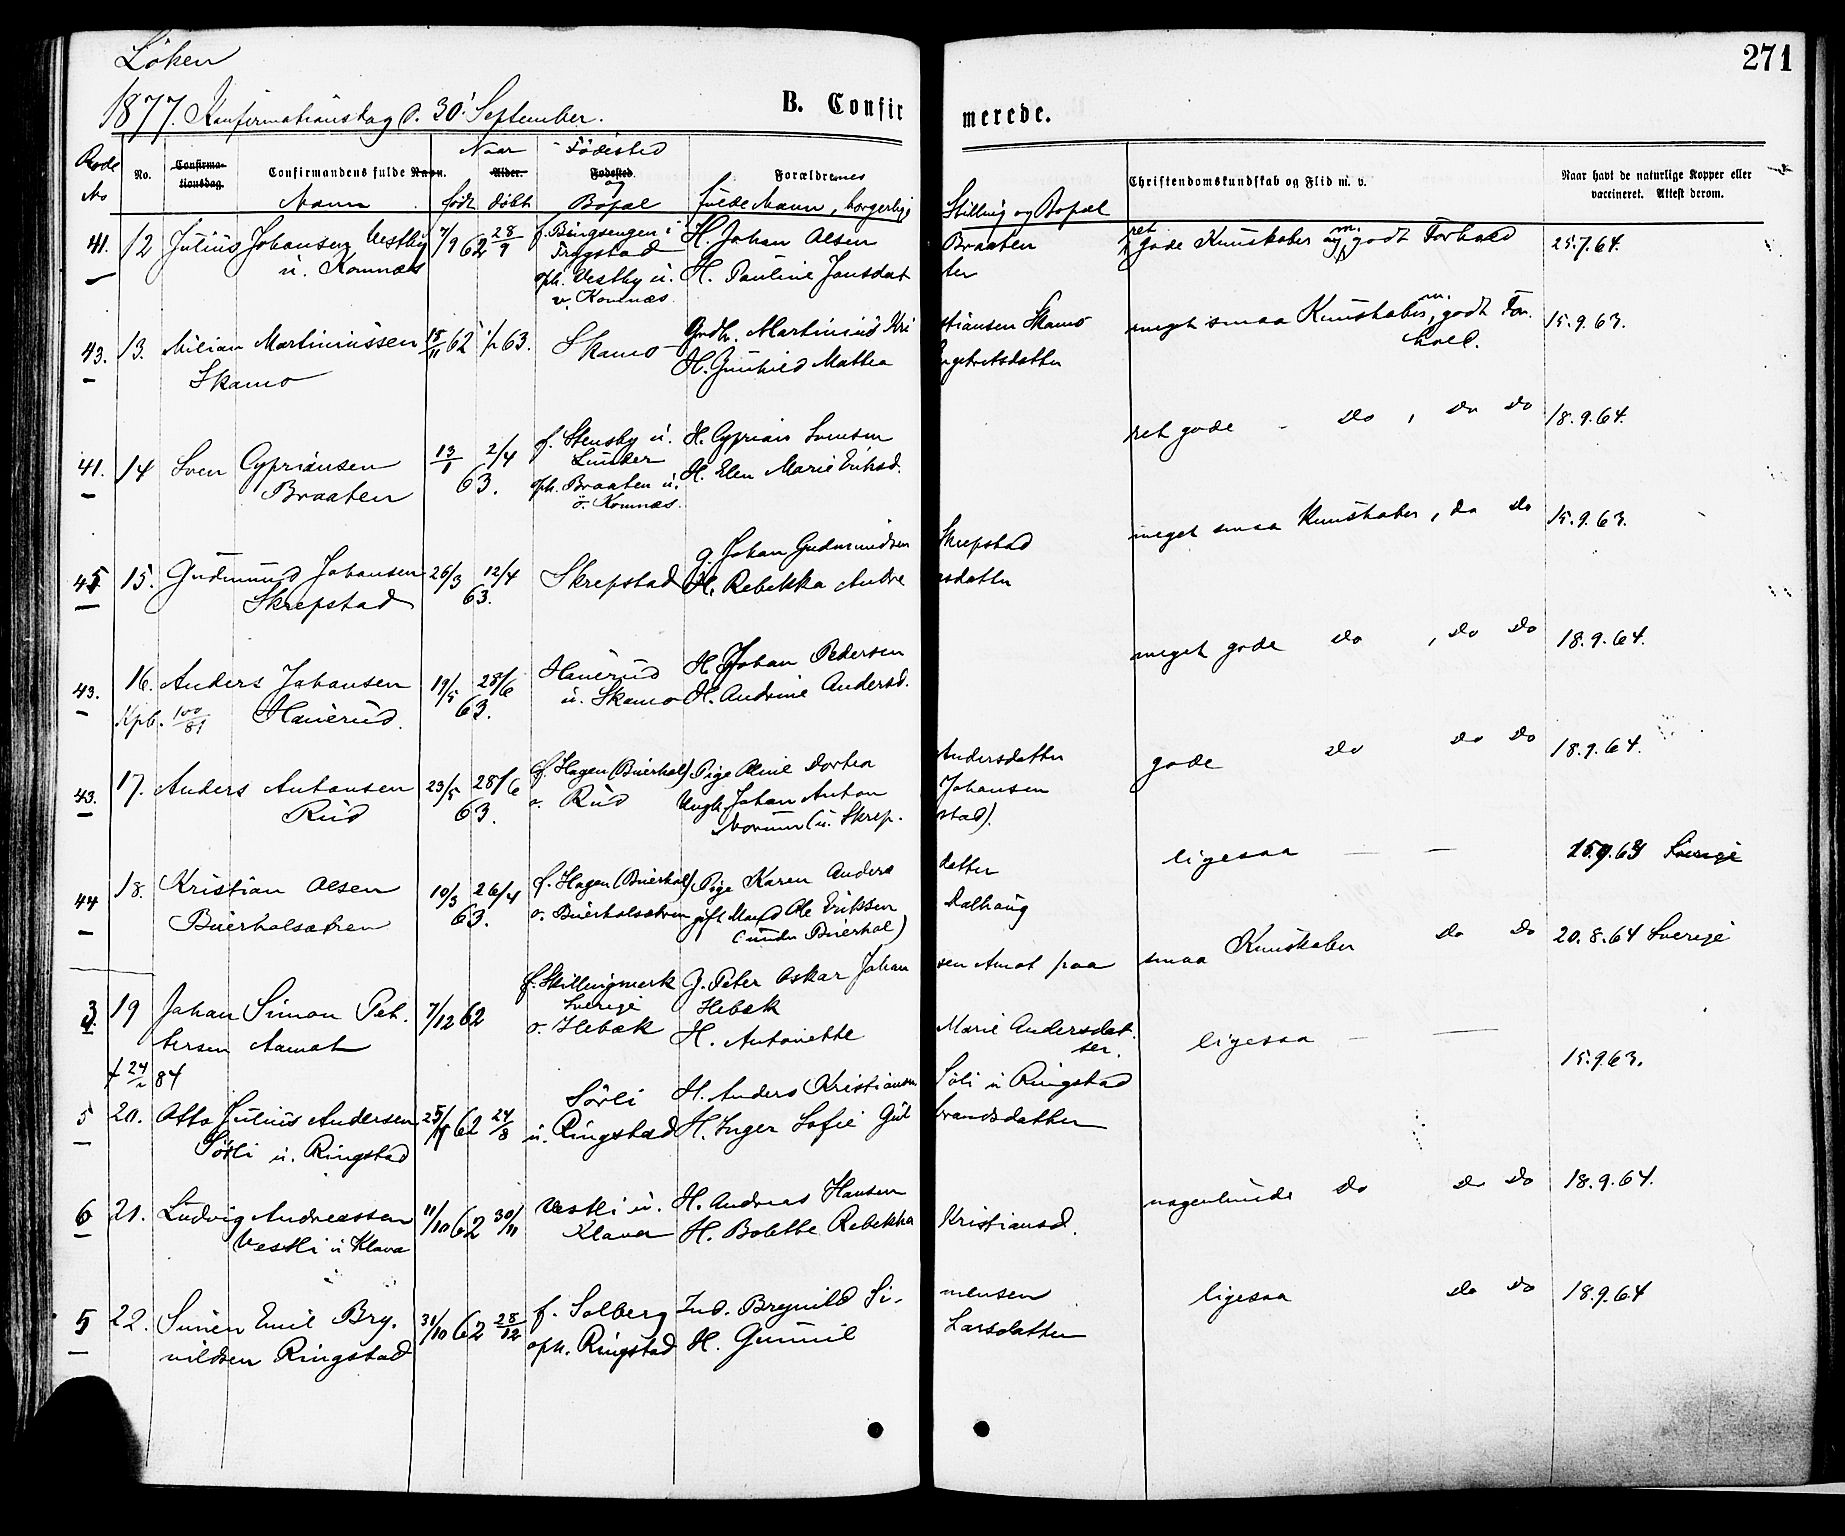 Löken
271
1877. Konfirmationsdag d. 30' September. B. Confirmerede.
Rode No | No. | Confirmationsdag. | Confirmandens fulde Navn. Navn | Naar Alder. født døbt | Fødested Fødested. og Bopæl | Forældrenes fulde Navn, borgerlige Stilling og Bopæl | Christendomskundskab og Flid m. v. | Naar havt de naturlige Kopper eller vaccineret. Attest derom.
41. 12 Julius Johansen Vestby 7/9 62 28/9 f. Bingsengen i H. Johan Olsen Braaten ret gode Kundskaber m. godt Forhold 25.7.64.
u. Komnæs Trygstad H. Pauline Jonsdatter
oph. Vestby u.
v. Komnæs.
43. 13. Milian Martiniussen 15/11 62 1/1 63. Skamo Grdbr. Martinius Kristiansen Skamo meget smaa Kundskaber, m. godt Forhold. 15.9.63.
Skamo H. Gunhild Mathea Engebretsdatter
41. 14 Sven Cypriansen 13/1 2/4 63. f. Stensby u. H. Cyprian Svensen ret gode - do , do do 18.9.64.
Braaten Lunder H. Elen Marie Eriksd.
oph. Braaten u.
ö. Komnæs.
45 15. Gudmund Johansen 26/3 12/4 63. Skrepstad G. Johan Gudmundsen Skrepstad meget smaa Kundskaber, do do 15.9.63.
Skrepstad H. Rebekka Andersdatter
43. 16. Anders Johansen 19/5 28/6 63. Haverud H. Johan Pedersen meget gode do , do do 18.9.64.
Kpb. 100/81 Haverud. u. Skamo H. Andrine Andersd.
43. 17. Anders Antonsen 23/5 28/6 63. f. Hagen (Buerhol) Pige Oline Dortea Andersdatter gode do do do 18.9.64.
Rud o. Rud Ungk. Johan Anton Johansen
Norum (u. Skrepstad).
44 18. Kristian Olsen 10/3 26/4 63. f. Hagen (Buerhol) Pige Karen Andersdatter ligesaa — — 15.9.63 Sverige
Buerholsætren o. Buerholsætren gift Mand Ole Eriksen Dalhaug
(under Buerhol)
3. 19 Johan Simon Pettersen Aamot 7/12 62 f. Skillingmark G. Peter Oskar Johansen Amot paa smaa Kundskaber do do 20.8.64 Sverige
Sverige Hebæk
o. Hebæk H. Antonette Marie Andersdatter.
† 24/2 84
5 20. Otto Julius Andersen 25/ 62 24/8 Sörli H. Anders Kristiansen Söli u Ringstad ligesaa — — 15.9.63.
Sörli u. Ringstad u. Ringstad H. Inger Sofie Gulbrandsdatter
6 21. Ludvig Andreassen 11/10 62 30/11 Vestli u. H. Andreas Hansen nogenlunde do do do 18.9.64.
Vestli u Klava Klava H. Bolette Rebekka Kristiansd.
5 22. Simen Emil Brynildsen Ringstad 31/10 62 28/12 f. Solberg Ind. Brynild Simensen ligesaa do do 18.9.64
oph. Ringstad H. Gunnil Larsdatter